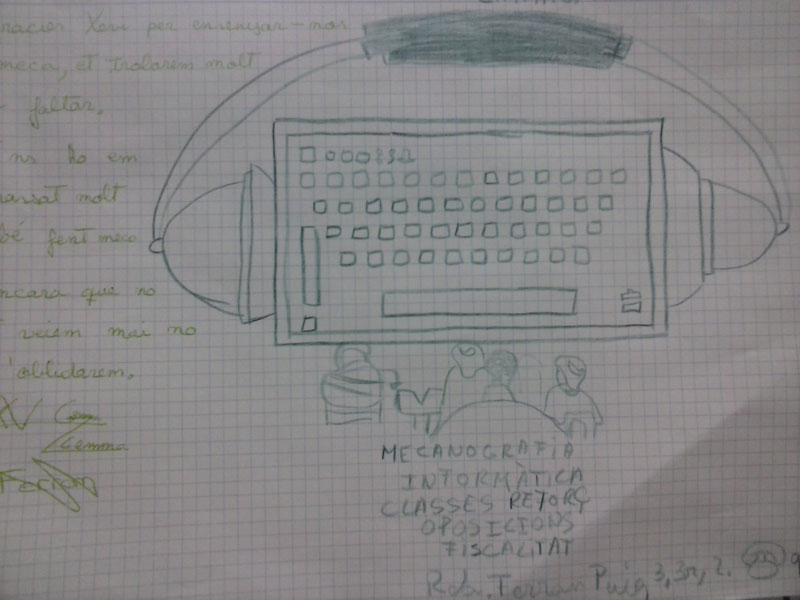 per ensenyar-nos
meca, et trobarem molt
faltar.
ns ho em
molt
fent meca
ncara que no
veiem mai no
oblidarem.
Gemma
Ferran
MECANOGRAFIA
INFORMÀTICA
CLASSES REFORÇ
OPOSICIONS
FISCALITAT
Rda. Ferran Puig 3, 3r, 2.